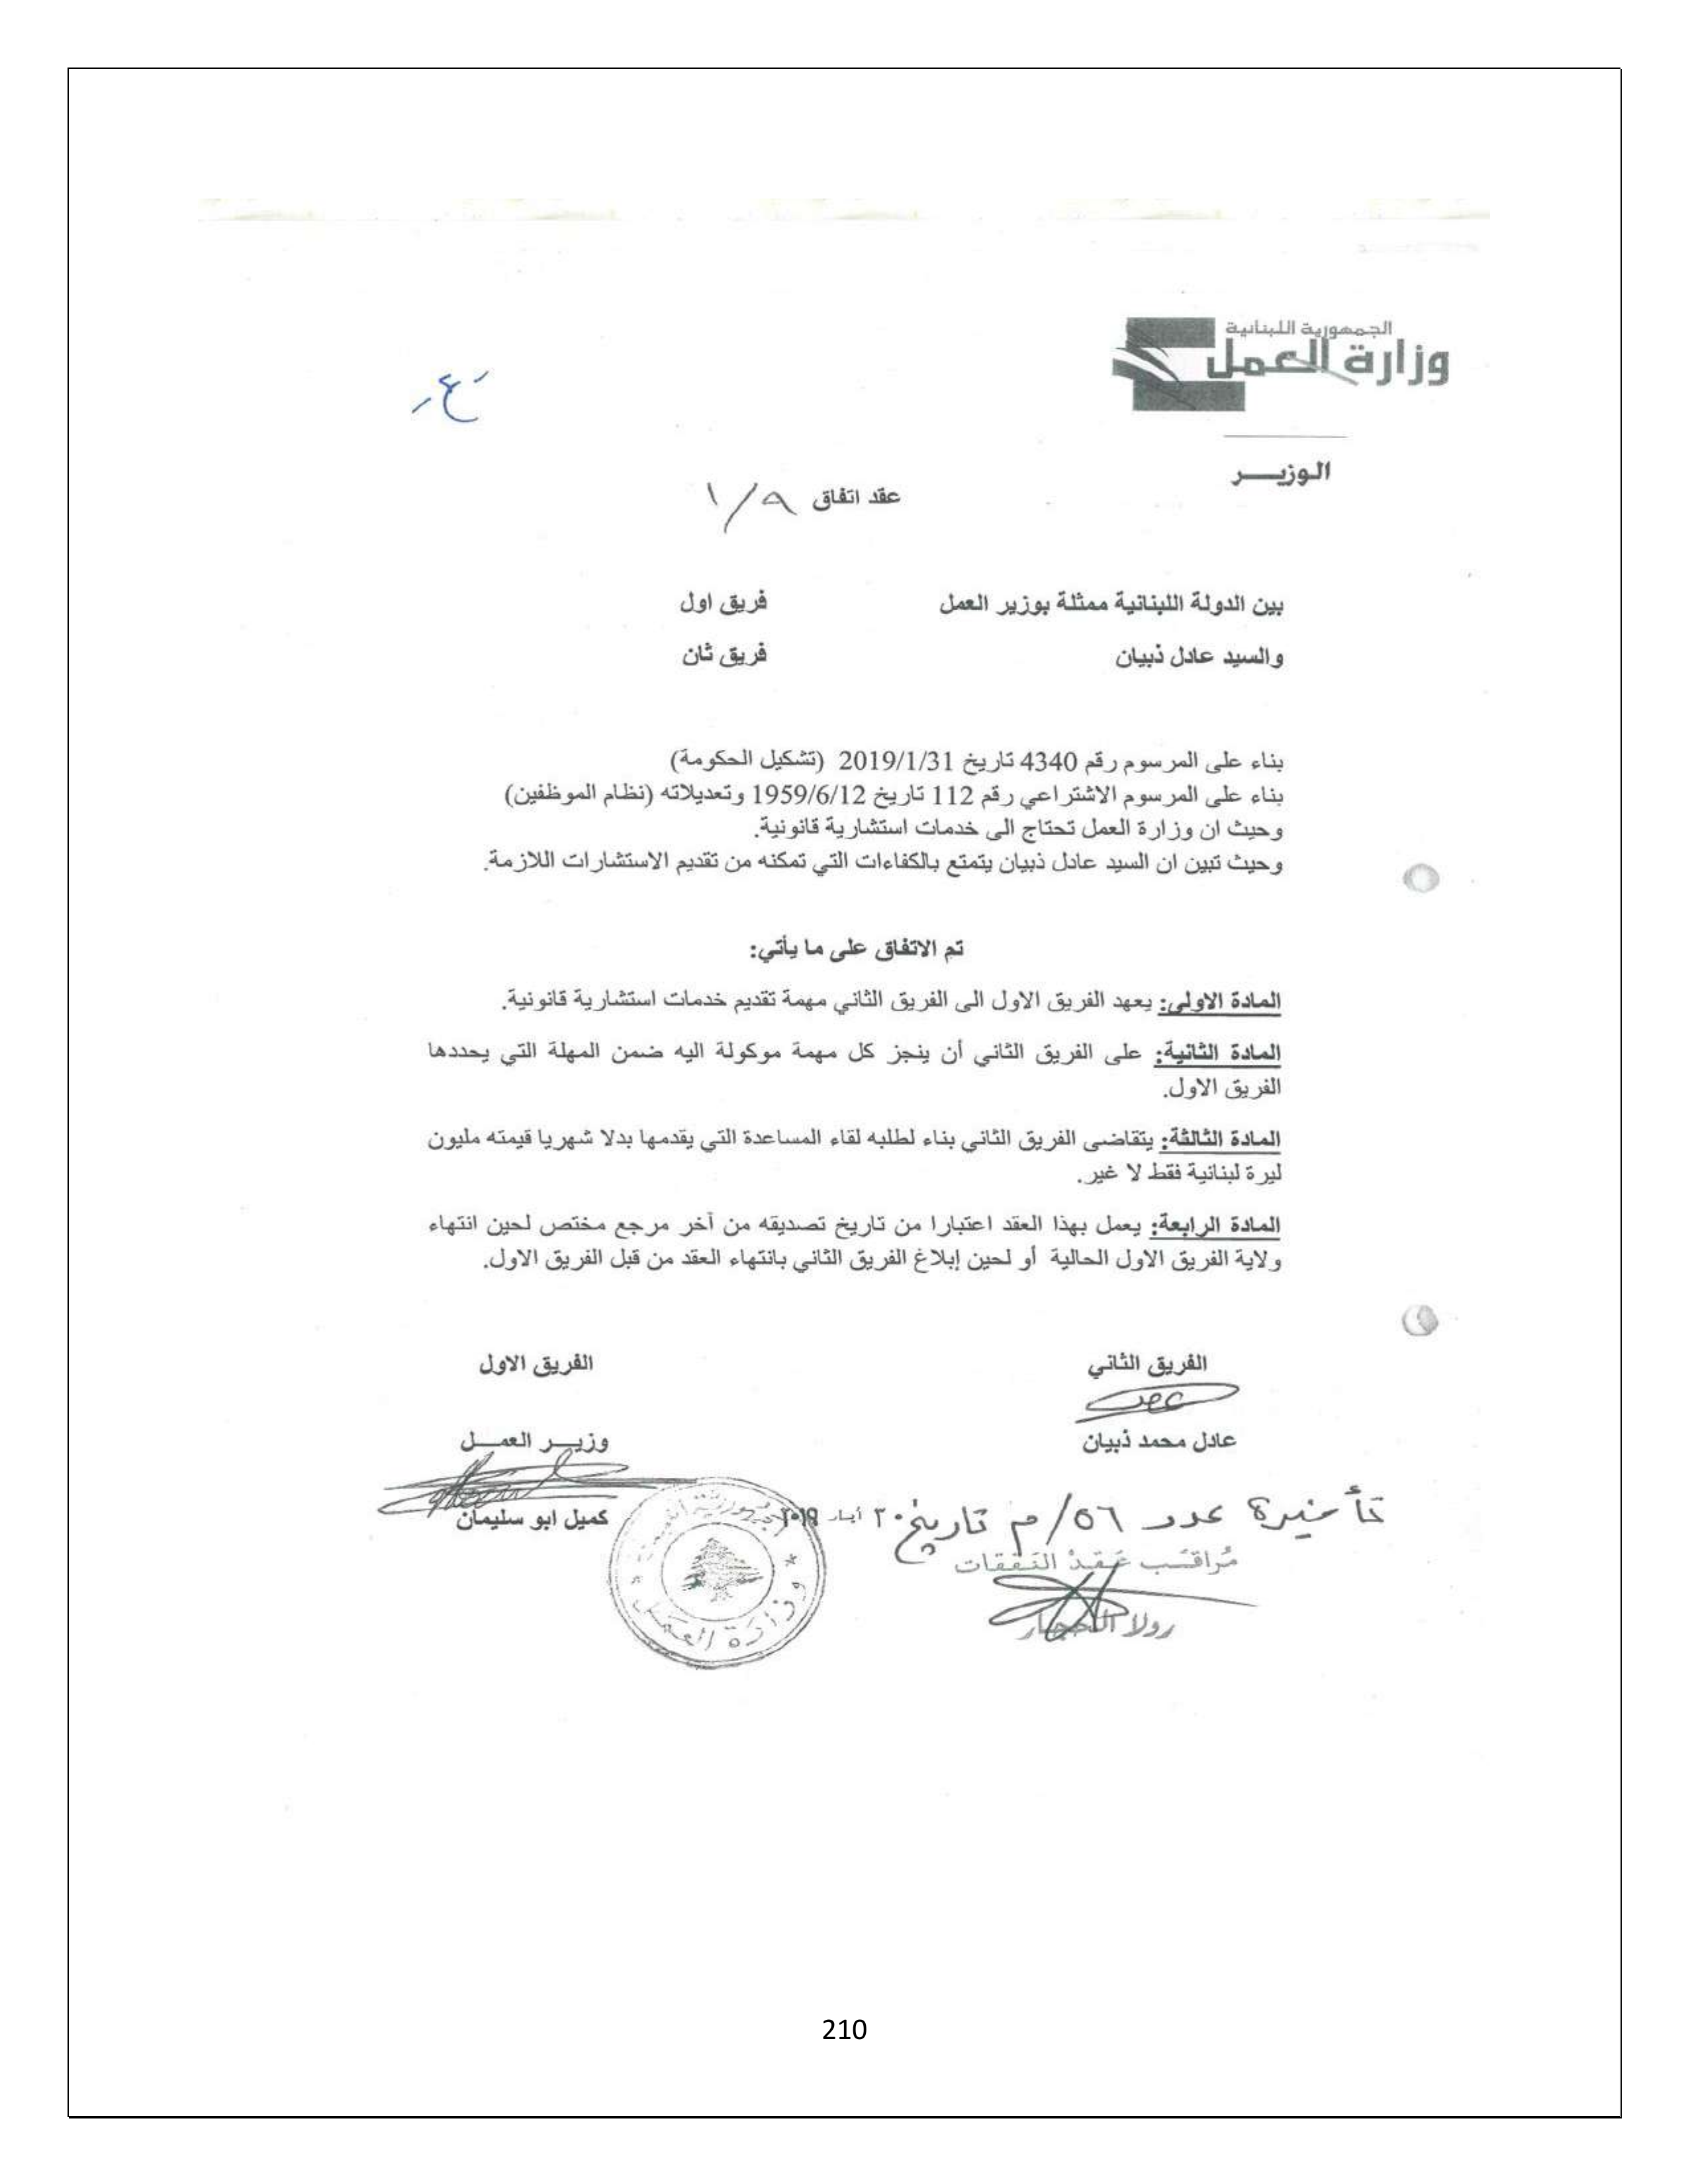 الجمهورية اللبنانية
وزارة العمل
الوزيـــر
عقد اتفاق ١/٩
بين الدولة اللبنانية ممثلة بوزير العمل فريق اول
والسيد عادل ذبيان فريق ثان
بناء على المرسوم رقم 4340 تاريخ 2019/1/31 (تشكيل الحكومة)
بناء على المرسوم الاشتراعي رقم 112 تاريخ 1959/6/12 وتعديلاته (نظام الموظفين)
وحيث ان وزارة العمل تحتاج الى خدمات استشارية قانونية.
وحيث تبين ان السيد عادل ذبيان يتمتع بالكفاءات التي تمكنه من تقديم الاستشارات اللازمة.
تم الاتفاق على ما يأتي:
المادة الاولى: يعهد الفريق الاول الى الفريق الثاني مهمة تقديم خدمات استشارية قانونية.
المادة الثانية: على الفريق الثاني أن ينجز كل مهمة موكولة اليه ضمن المهلة التي يحددها
الفريق الاول.
المادة الثالثة: يتقاضى الفريق الثاني بناء لطلبه لقاء المساعدة التي يقدمها بدلا شهريا قيمته مليون
ليرة لبنانية فقط لا غير.
المادة الرابعة: يعمل بهذا العقد اعتبارا من تاريخ تصديقه من آخر مرجع مختص لحين انتهاء
ولاية الفريق الاول الحالية أو لحين إبلاغ الفريق الثاني بانتهاء العقد من قبل الفريق الاول.
الفريق الثاني الفريق الاول
عادل محمد ذبيان وزيـــر العمـــل
كميل ابو سليمان
تأشيرة عدد ٥٦/م تاريخ ٣٠ أيار ٢٠١٩
مُراقب عقد النفقات
رولا الحجار
وزارة العمل
210